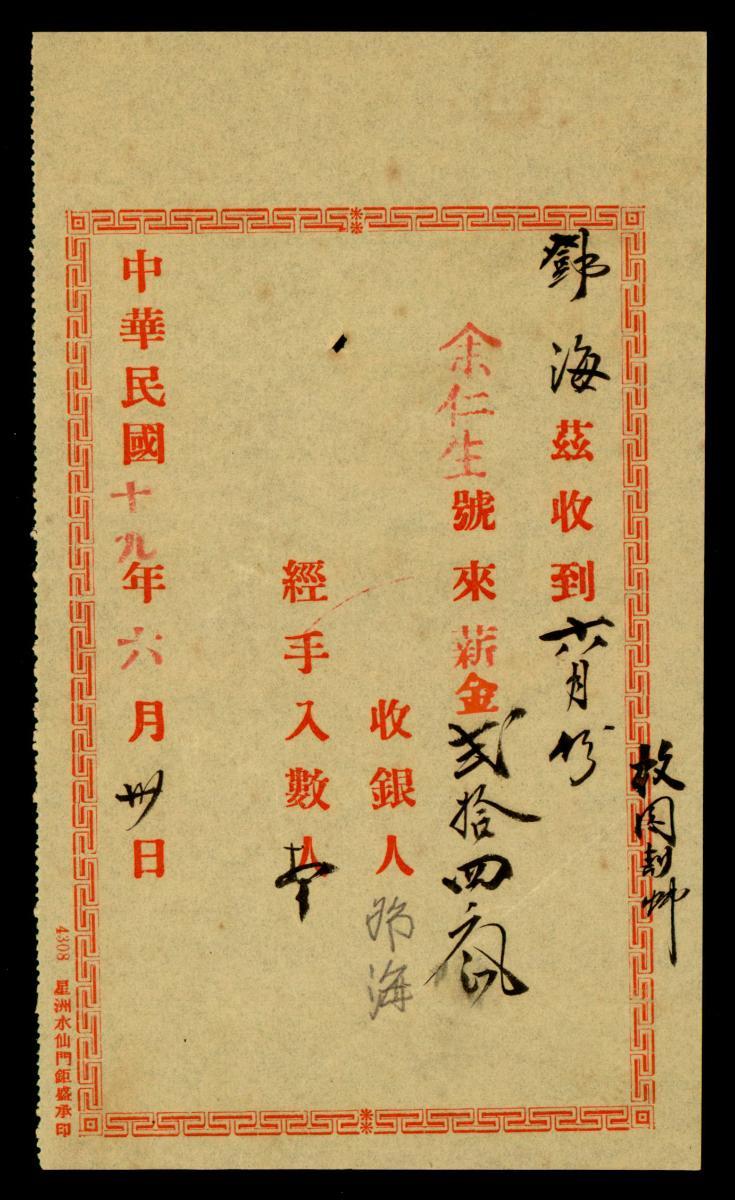 鄧海茲收到六月份
余仁生號來薪金弍拾四
收銀人 邓海
經手入數人
中華民國十九年六月卅日
4308 星洲水仙門鉅盛承印